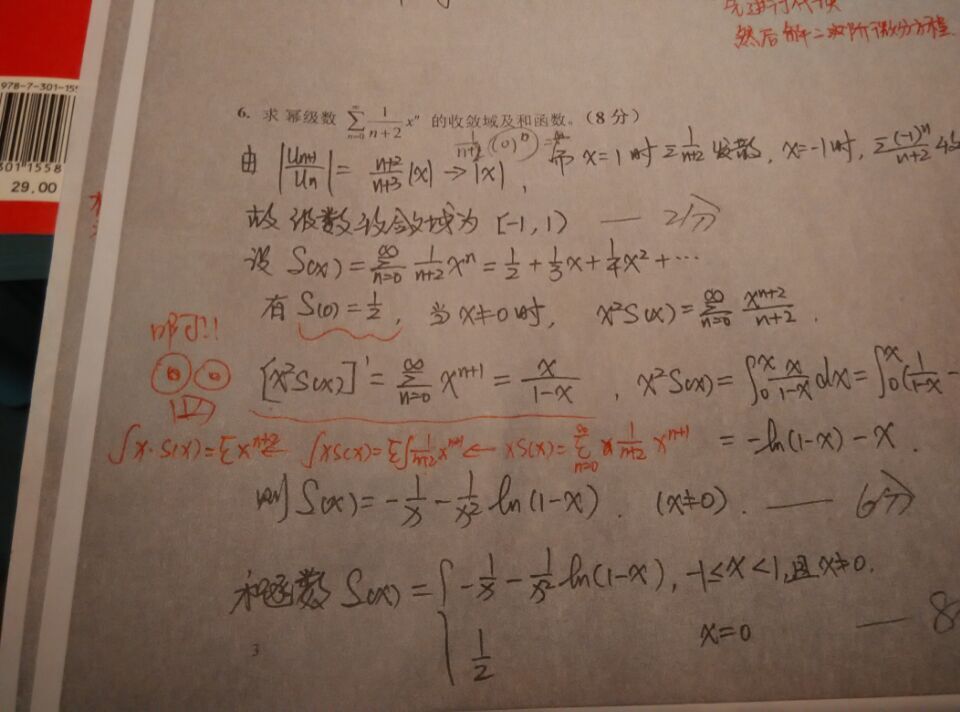 先进行代换
然后解二次阶微分方程
978-7-301-155
301"1558
29.00
6. 求幂级数 \sum_{n=0}^{\infty} \frac{1}{n+2} x^n 的收敛域及和函数。(8 分)
\frac{1}{n+2} (0)^n =
由 |\frac{U_{n+1}}{U_n}| = \frac{n+2}{n+3}|x| → |x|, 而 x=1 时 Σ\frac{1}{n+2} 发散, x=-1 时, Σ\frac{(-1)^n}{n+2} 收
故级数收敛域为 [-1, 1) —— 2分
设 S(x) = \sum_{n=0}^{\infty} \frac{1}{n+2} x^n = \frac{1}{2} + \frac{1}{3}x + \frac{1}{4}x^2 + ⋯
有 S(0) = \frac{1}{2}, 当 x≠0 时, x^2S(x) = \sum_{n=0}^{\infty} \frac{x^{n+2}}{n+2}.
[x^2S(x)]' = \sum_{n=0}^{\infty} x^{n+1} = \frac{x}{1-x}, x^2S(x) = \int_0^x \frac{x}{1-x} dx = \int_0^x (\frac{1}{1-x} -
∫x·S(x) = Σx^{n+2} ← ∫xS(x) = Σ∫\frac{1}{n+2}x^{n+1} ← xS(x) = \sum_{n=0}^{\infty} \frac{1}{n+2} x^{n+1}
= -ln(1-x) - x.
则 S(x) = -\frac{1}{x} - \frac{1}{x^2} ln(1-x). (x≠0). —— 6分
和函数 S(x) = { -\frac{1}{x} - \frac{1}{x^2} ln(1-x), -1≤x<1, 且 x≠0.
\frac{1}{2} x=0 —— 8
3